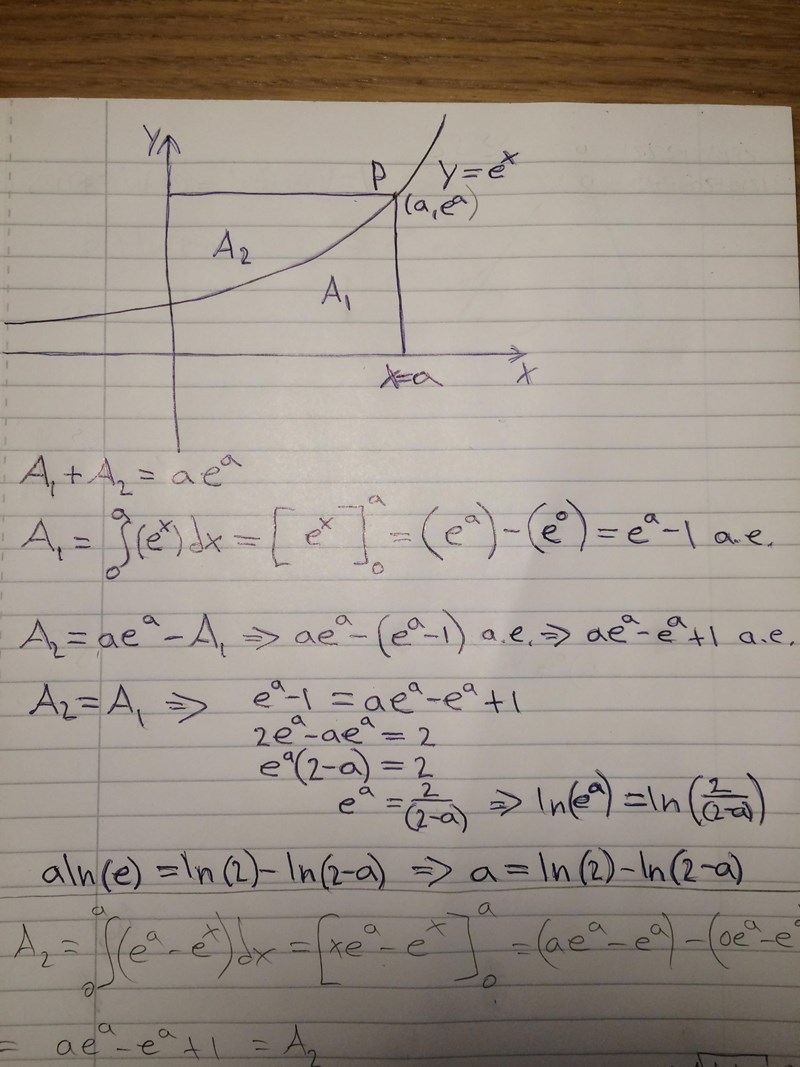 Y
P
y=eˣ
(a, eᵃ)
A₂
A₁
x=a
x
A₁+A₂ = aeᵃ
A₁ = ∫₀ᵃ(eˣ)dx = [eˣ]₀ᵃ = (eᵃ)-(e⁰) = eᵃ-1 a.e.
A₂ = aeᵃ - A₁ ⇒ aeᵃ-(eᵃ-1) a.e. ⇒ aeᵃ-eᵃ+1 a.e.
A₂ = A₁ ⇒ eᵃ-1 = aeᵃ-eᵃ+1
2eᵃ-aeᵃ = 2
eᵃ(2-a) = 2
eᵃ = 2/(2-a) ⇒ ln(eᵃ) = ln(2/(2-a))
aln(e) = ln(2)-ln(2-a) ⇒ a = ln(2)-ln(2-a)
A₂ = ∫₀ᵃ(eᵃ-eˣ)dx = [xeᵃ-eˣ]₀ᵃ = (aeᵃ-eᵃ)-(0eᵃ-e
= aeᵃ-eᵃ+1 = A₂